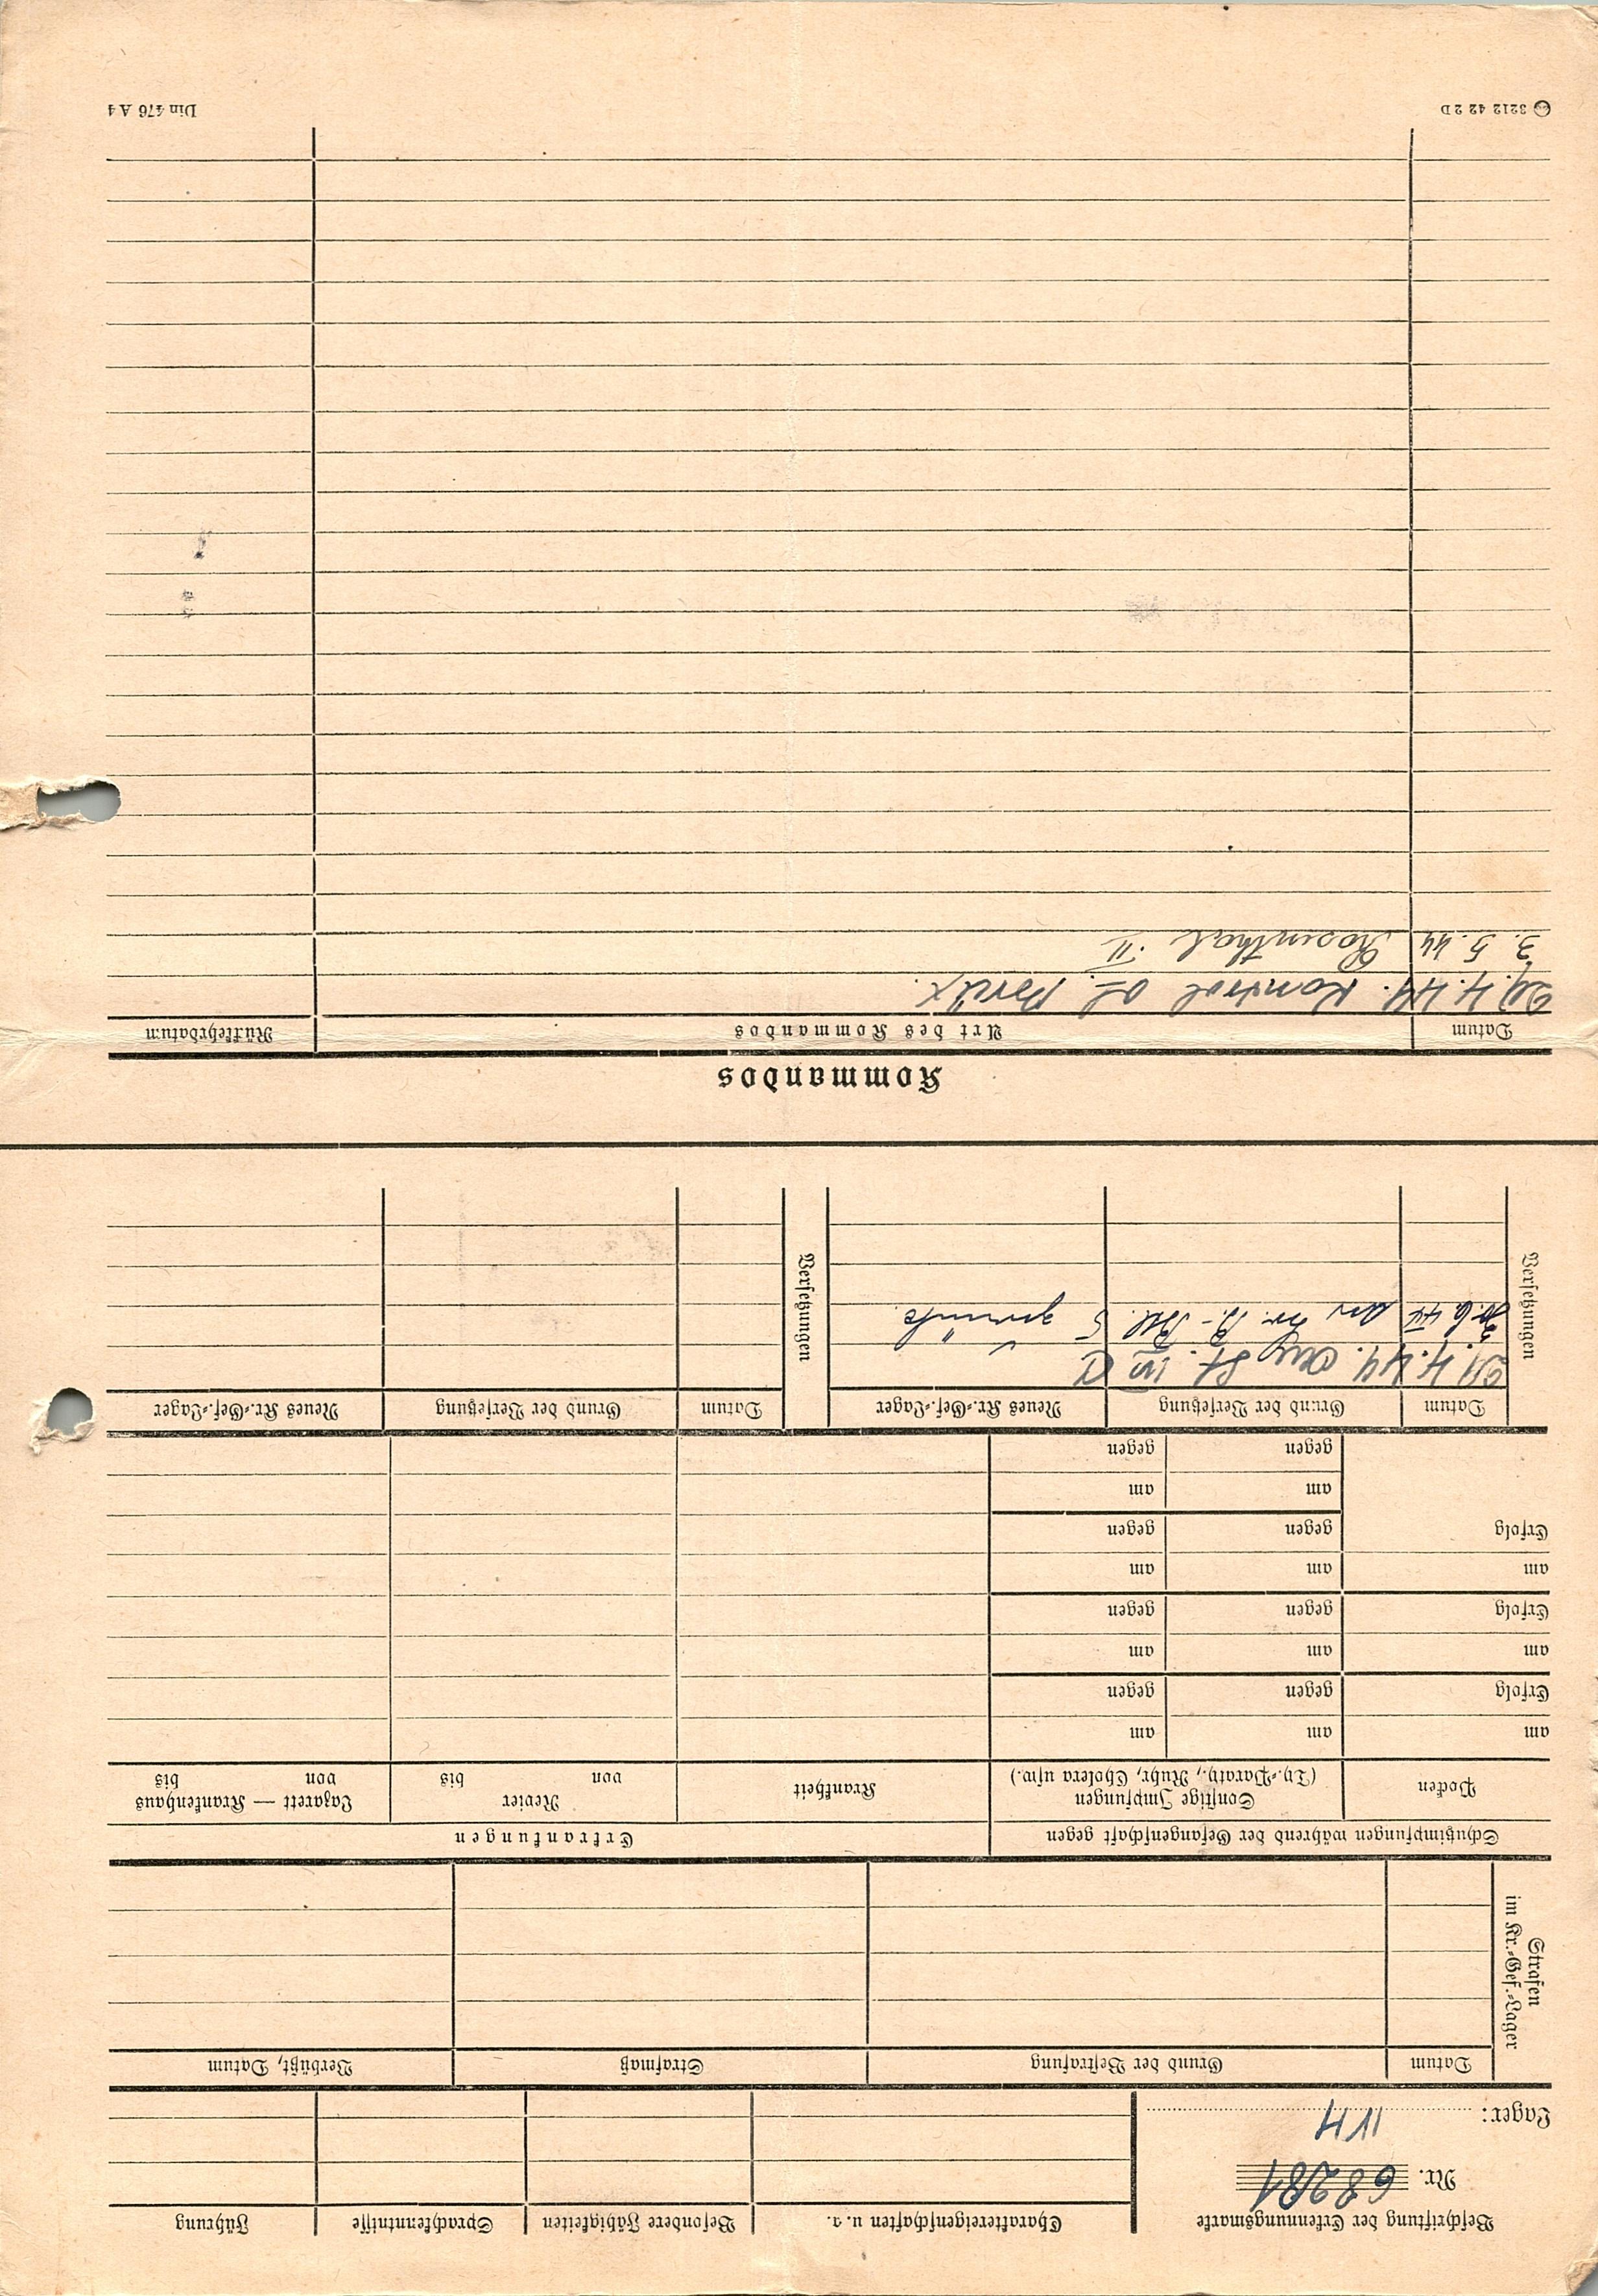 Beschriftung der Erkennungsmarke
Nr. 68281
Lager: IV H
Charaktereigenschaften u. a.
Besondere Fähigkeiten
Sprachkenntnisse
Führung
Strafen
im Kr.-Gef.-Lager
Datum
Grund der Bestrafung
Strafmaß
Verbüßt, Datum
Schutzimpfungen während der Gefangenschaft gegen
Erkrankungen
Pocken
Sonstige Impfungen
(Ty.-Paraty., Ruhr, Cholera usw.)
Krankheit
Revier
von bis
Lazarett — Krankenhaus
von bis
am am am
Erfolg gegen gegen
am am am
Erfolg gegen gegen
am am am
Erfolg gegen gegen
am am
gegen gegen
Versetzungen
Datum
Grund der Versetzung
Neues Kr.-Gef.-Lager
Versetzungen
Datum
Grund der Versetzung
Neues Kr.-Gef.-Lager
29.4.44. aus St. IV
44 an Kr. B.- Btl. 5
Kommandos
Datum
Art des Kommandos
Rückkehrdatum
29.4.44.
3.5.44 Rosenthal II
3212 42 2 D
Din 476 A 4